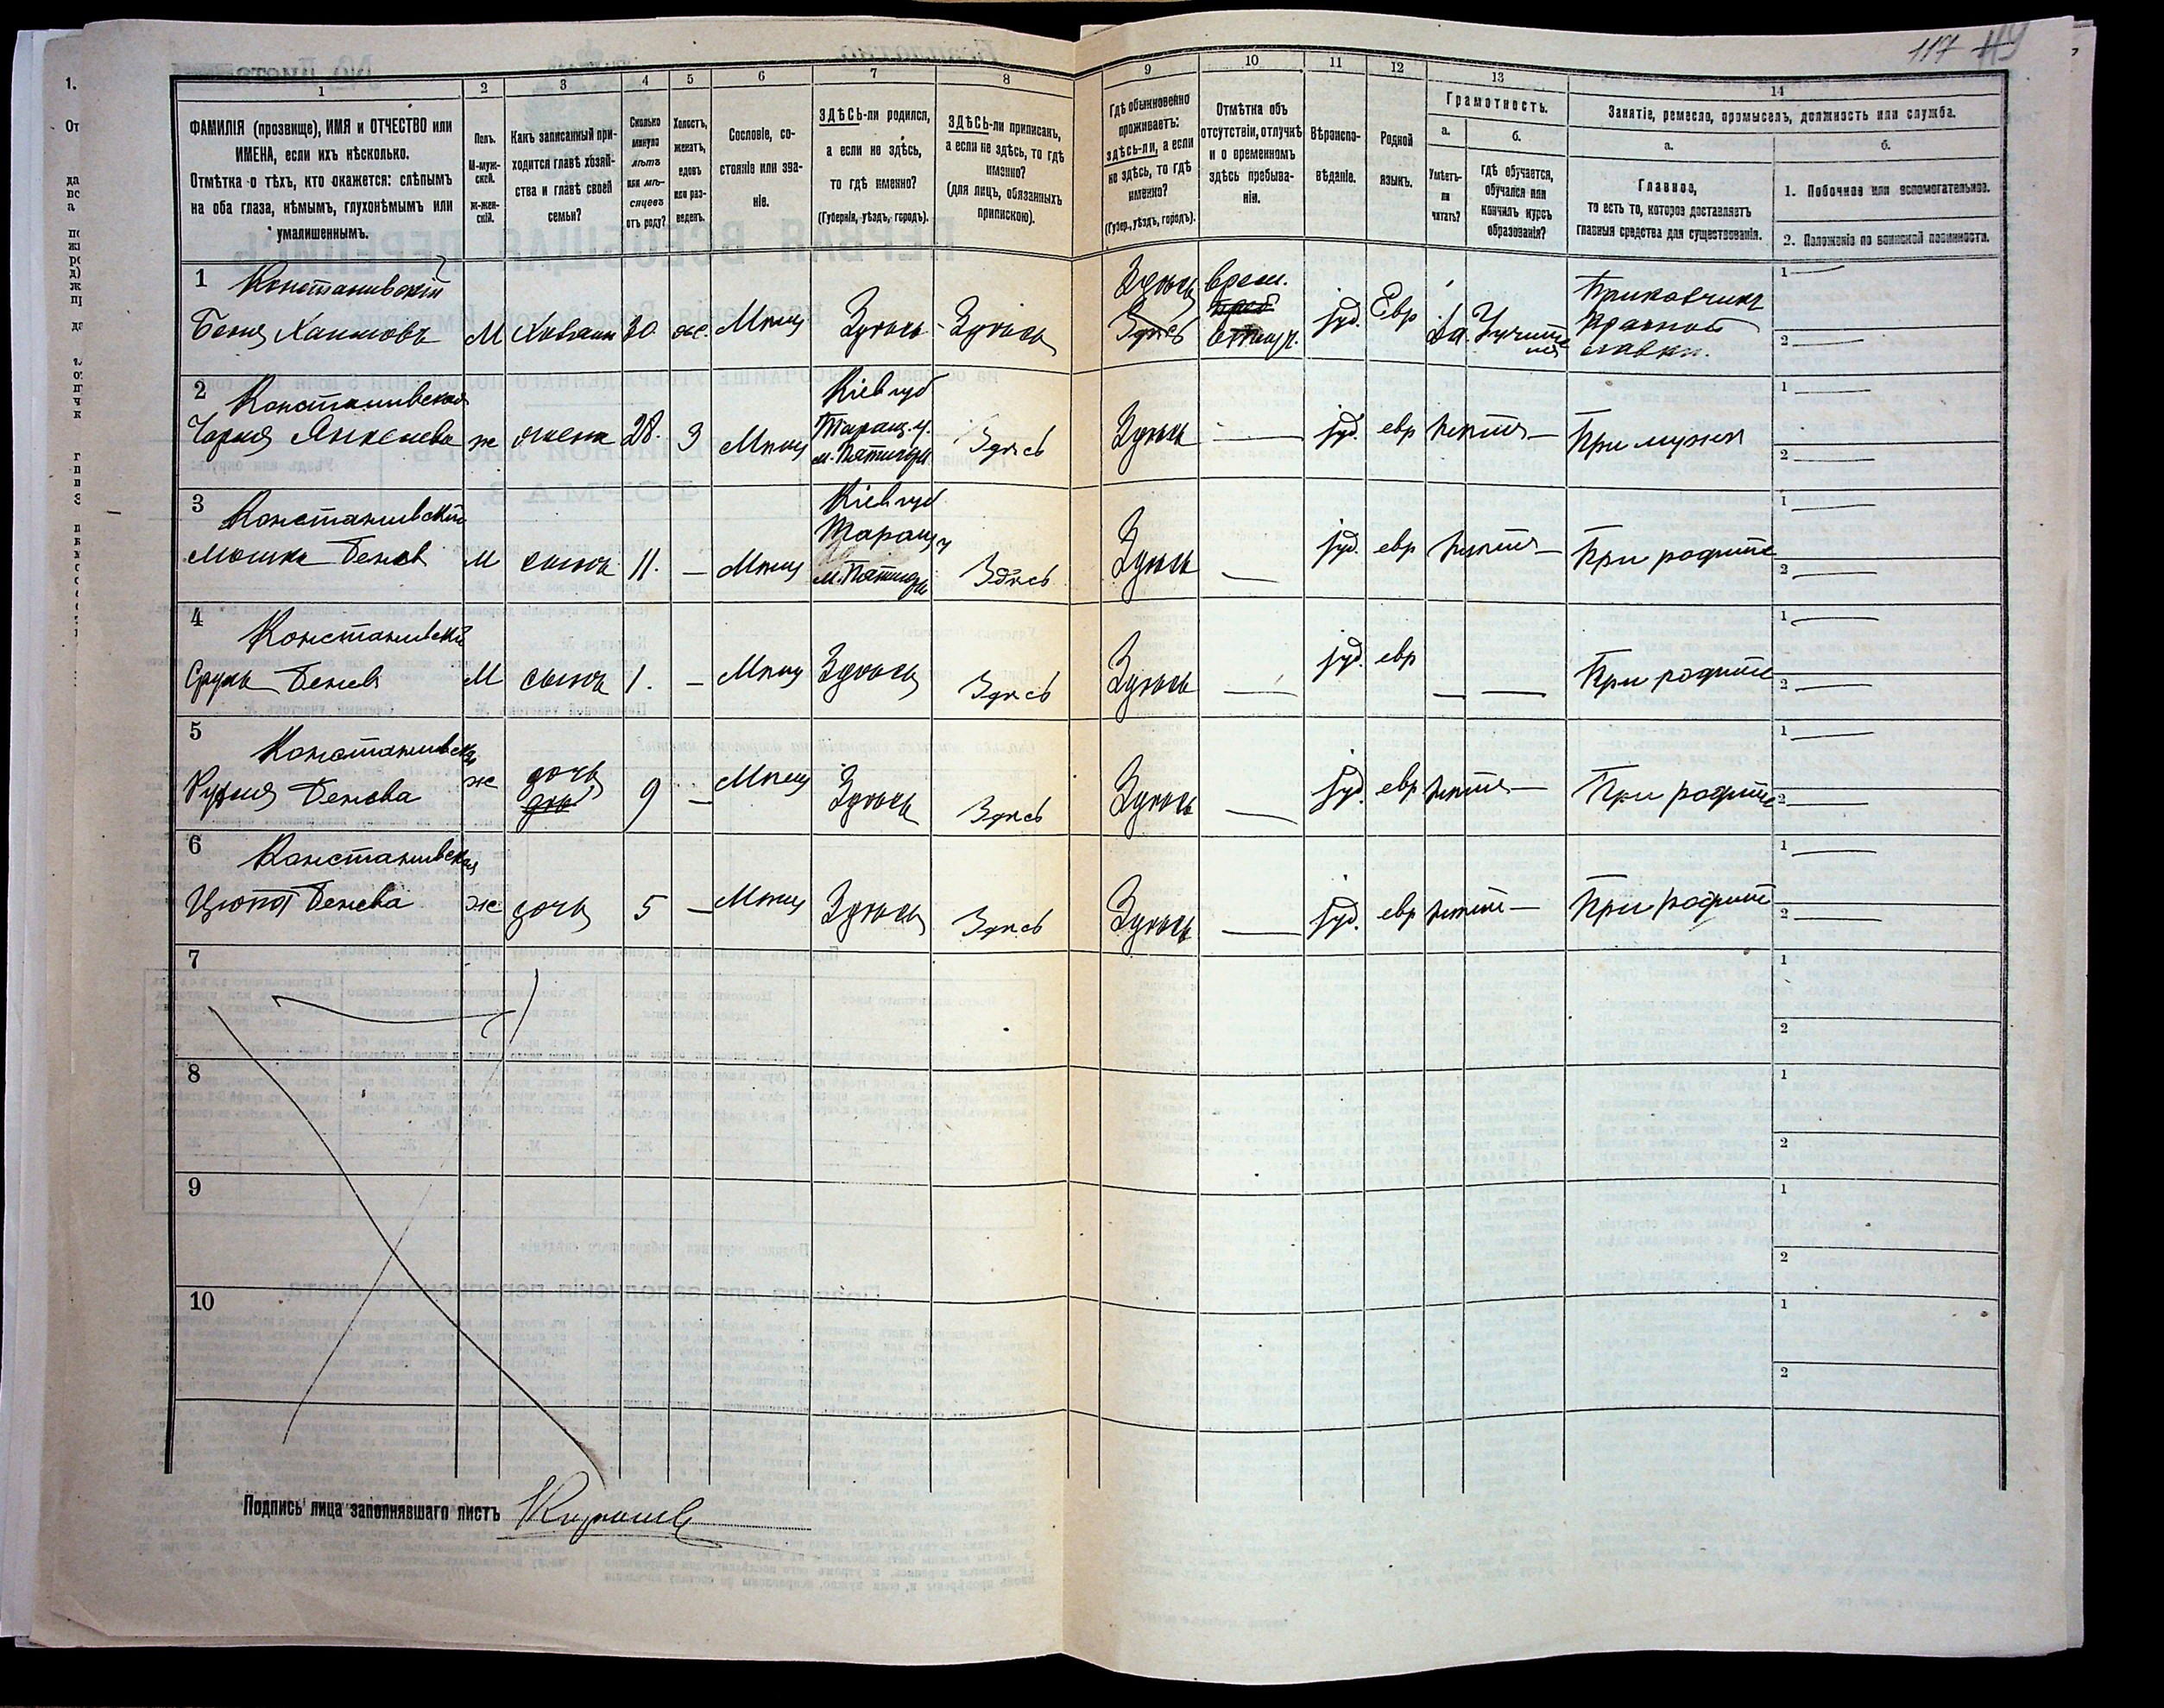 117
1
2
3
4
5
6
7
8
9
10
11
12
13
14
ФАМИЛІЯ (прозвище), ИМЯ и ОТЧЕСТВО или
ИМЕНА, если ихъ нѣсколько.
Отмѣтка о тѣхъ, кто окажется: слѣпымъ
на оба глаза, нѣмымъ, глухонѣмымъ или
умалишеннымъ.
Полъ.
М-муж-
ской.
Ж-жен-
скій.
Какъ записанный при-
ходится главѣ хозяй-
ства и главѣ своей
семьи?
Сколько
минуло
лѣтъ
или мѣ-
сяцевъ
отъ роду?
Холостъ,
женатъ,
вдовъ
или раз-
веденъ.
Сословіе, со-
стояніе или зва-
ніе.
ЗДѢСЬ-ли родился,
а если не здѣсь,
то гдѣ именно?
(Губернія, уѣздъ, городъ).
ЗДѢСЬ-ли приписанъ,
а если не здѣсь, то гдѣ
именно?
(для лицъ, обязанныхъ
припискою).
Гдѣ обыкновенно
проживаетъ:
здѣсь-ли, а если
не здѣсь, то гдѣ
именно?
(Губер., уѣздъ, городъ).
Отмѣтка объ
отсутствіи, отлучкѣ
и о временномъ
здѣсь пребыва-
ніи.
Вѣроиспо-
вѣданіе.
Родной
языкъ.
Грамотность.
а.
Умѣетъ-
ли
читать?
б.
гдѣ обучается,
обучался или
кончилъ курсъ
образованія?
Занятіе, ремесло, промыселъ, должность или служба.
а.
Главное,
то есть то, которое доставляетъ
главныя средства для существованія.
б.
1. Побочное или вспомогательное.
2. Положеніе по воинской повинности.
1 Констанивскій
Беня Хаимовъ М Хозяинъ 30 же. Мѣщ Здѣсь Здѣсь Здѣсь врем. отлуч. іуд. Евр да. Учител Приказчикъ
лавки.
1
2
2 Констанивская
Янкелева ж жена 28. З Мѣщ Кіев губ
Таращ. у.
м. Пятигоры Здѣсь Здѣсь — іуд. евр нѣтъ — При мужѣ
1
2
3 Констанивскій
Мошко Беньев М сынъ 11. — Мѣщ Кіев губ
Таращ у
м. Пятигоры Здѣсь Здѣсь — іуд. евр нѣтъ — При родите
1
2
4 Констанивскій
Сруль Беньев М сынъ 1. — Мѣщ Здѣсь Здѣсь Здѣсь — іуд. евр — — При родите
1
2
5 Констанивская
Беньева ж дочь 9 — Мѣщ Здѣсь Здѣсь Здѣсь — іуд. евр нѣтъ — При родите
1
2
6 Констанивская
Беньева ж дочь 5 — Мѣщ Здѣсь Здѣсь Здѣсь — іуд. евр нѣтъ — При родите
1
2
7
1
2
8
1
2
9
1
2
10
1
2
Подпись лица заполнявшаго листъ